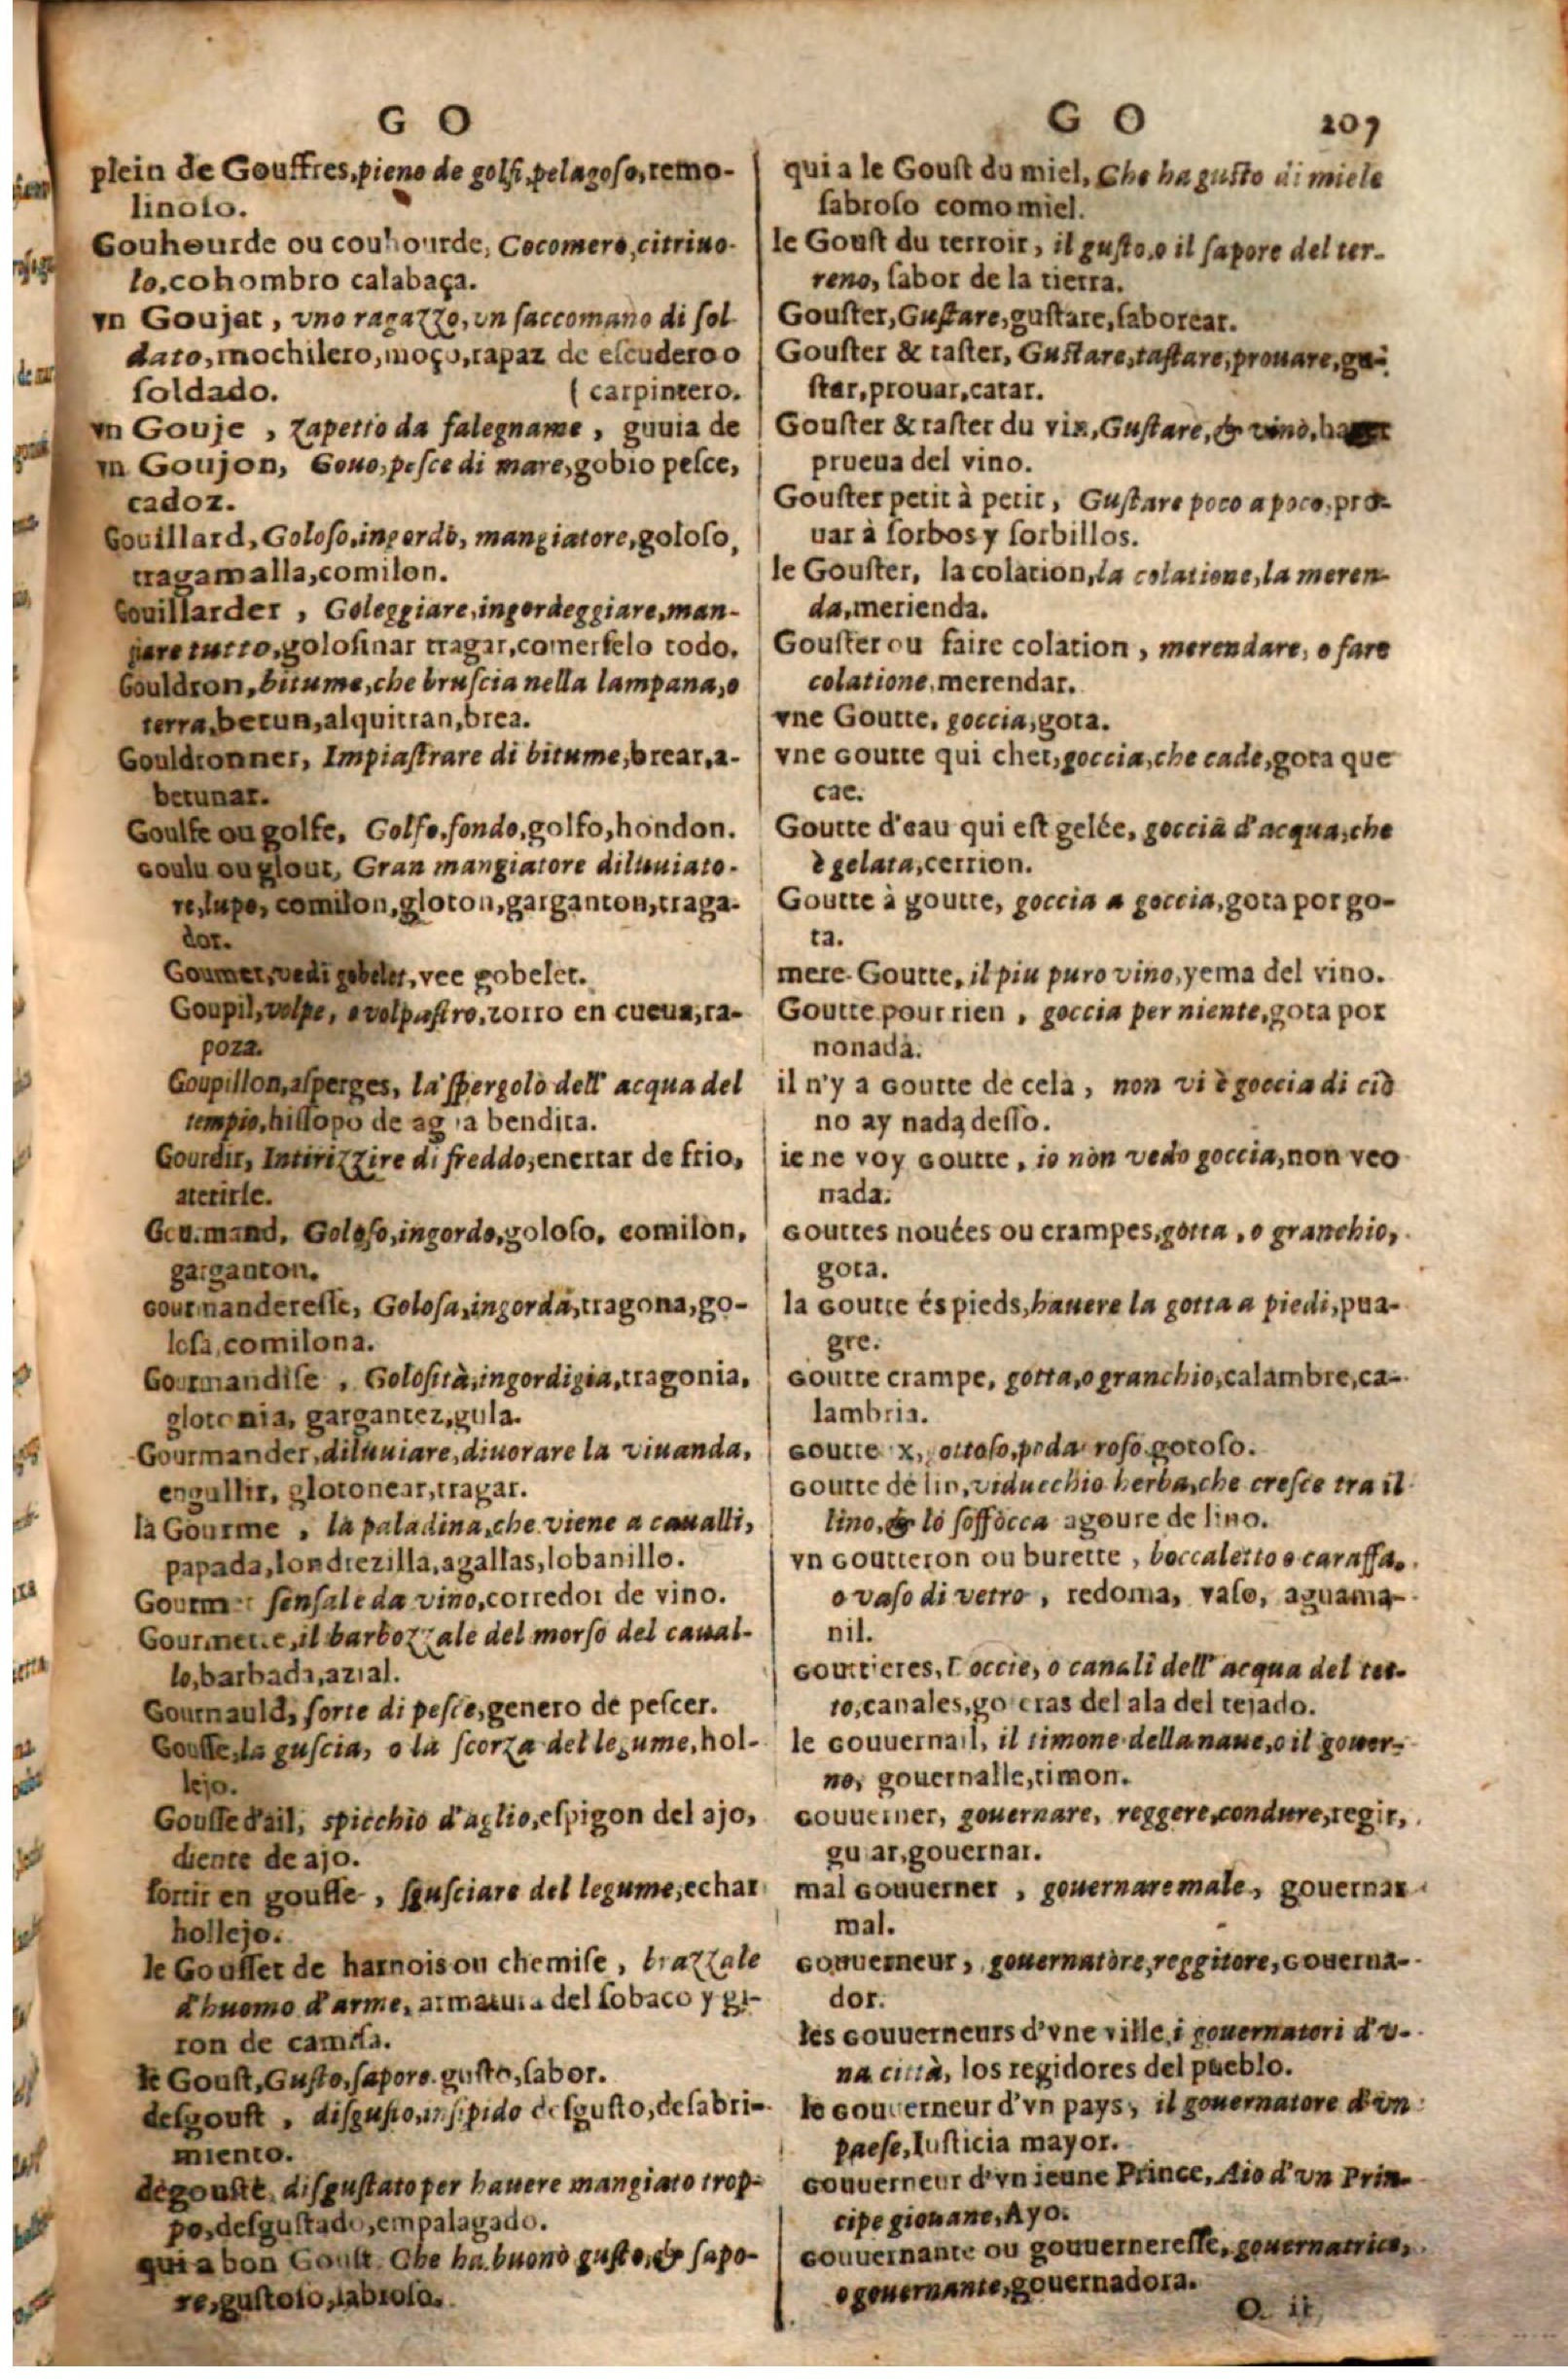 G O
plein de Gouffres, pieno de golfi, pelagoso, remo-
linoso.
Gouhourde ou couhourde, Cocomero, citriuo-
lo, cohombro calabaça.
vn Goujat, vno ragazzo, vn saccomano di sol
dato, mochilero, moço, rapaz de escudero o
soldado. ( carpintero.
vn Gouje, zapetto da falegname, guuia de
vn Goujon, Gouo, pesce di mare, gobio pesce,
cadoz.
Gouillard, Goloso, ingordo, mangiatore, goloso,
tragamalla, comilon.
Gouillarder, Goleggiare, ingordeggiare, man-
giare tutto, golosinar tragar, comerselo todo.
Gouldron, bitume, che bruscia nella lampana, o
terra, betun, alquitran, brea.
Gouldronner, Impiastrare di bitume, brear, a-
betunar.
Goulfe ou golfe, Golfo, fondo, golfo, hondon.
Goulu ou glout, Gran mangiatore diluuiato-
re, lupo, comilon, gloton, garganton, traga-
dor.
Goumet, vedi gobelet, vee gobelet.
Goupil, volpe, o volpastro, zorro en cueua, ra-
poza.
Goupillon, asperges, la spergolo dell' acqua del
tempio, hissopo de ag a bendita.
Gourdir, Intirizzire di freddo, enertar de frio,
aterirse.
Gourmand, Goloso, ingordo, goloso, comilon,
garganton.
Gourmanderesse, Golosa, ingorda, tragona, go-
losa, comilona.
Gourmandise, Golosità, ingordigia, tragonia,
glotonia, gargantez, gula.
Gourmander, diluuiare, diuorare la viuanda,
engullir, glotonear, tragar.
la Gourme, la paladina, che viene a caualli,
papada, londrezilla, agallas, lobanillo.
Gourmet sensale da vino, corredor de vino.
Gourmette, il barbozzale del morso del caual-
lo, barbada, azial.
Gournauld, sorte di pesce, genero de pescer.
Gousse, la guscia, o la scorza del legume, hol-
lejo.
Gousse d'ail, spicchio d'aglio, espigon del ajo,
diente de ajo.
sortir en gousse, sgusciare del legume, echar
hollejo.
le Gousset de harnois ou chemise, brazzale
d'huomo d'arme, armatura del sobaco y gi-
ron de camisa.
le Goust, Gusto, sapore. gusto, sabor.
desgoust, disgusto, insipido desgusto, desabri-
miento.
dégousté, disgustato per hauere mangiato trop-
po, desgustado, empalagado.
qui a bon Goust. Che ha buono gusto, & sapo-
re, gustoso, sabroso.
G O 207
qui a le Goust du miel, Che ha gusto di miele
sabroso como miel.
le Goust du terroir, il gusto, o il sapore del ter-
reno, sabor de la tierra.
Gouster, Gustare, gustare, saborear.
Gouster & taster, Gustare, tastare, prouare, gu-
star, prouar, catar.
Gouster & taster du vin, Gustare, & vino,
prueua del vino.
Gouster petit à petit, Gustare poco a poco, pro-
uar à sorbos y sorbillos.
le Gouster, la colation, la colatione, la meren-
da, merienda.
Gouster ou faire colation, merendare, o fare
colatione, merendar.
vne Goutte, goccia, gota.
vne Goutte qui chet, goccia, che cade, gota que
cae.
Goutte d'eau qui est gelée, goccia d'acqua, che
è gelata, cerrion.
Goutte à goutte, goccia a goccia, gota por go-
ta.
mere Goutte, il piu puro vino, yema del vino.
Goutte pour rien, goccia per niente, gota por
nonada.
il n'y a Goutte de cela, non vi è goccia di ciò
no ay nada desso.
ie ne voy Goutte, io non vedo goccia, non veo
nada.
Gouttes nouées ou crampes, gotta, o granchio,
gota.
la Goutte és pieds, hauere la gotta a piedi, pua-
gre.
Goutte crampe, gotta, o granchio, calambre, ca-
lambria.
Goutte x, ottoso, poda roso gotoso.
Goutte de lin, viducchio herba, che cresce tra il
lino, & lo soffocca agoure de lino.
vn Goutteron ou burette, boccaletto o caraffa,
o vaso di vetro, redoma, vaso, aguama-
nil.
Gouttieres, Goccie, o canali dell' acqua del tet-
to, canales, go eras del ala del tejado.
le Gouuernail, il timone della naue, o il gouer-
no, gouernalle, timon.
Gouuerner, gouernare, reggere, condure, regir,
gu ar, gouernar.
mal Gouuerner, gouernare male, gouernar
mal.
Gouuerneur, gouernatore, reggitore, Gouerna-
dor.
les Gouuerneurs d'vne ville, i gouernatori d'v-
na città, los regidores del pueblo.
le Gouuerneur d'vn pays, il gouernatore d'vn
paese, Iusticia mayor.
Gouuerneur d'vn ieune Prince, Aio d'vn Prin-
cipe giouane, Ayo.
Gouuernante ou gouuerneresse, gouernatrice,
o gouernante, gouernadora.
O. ii